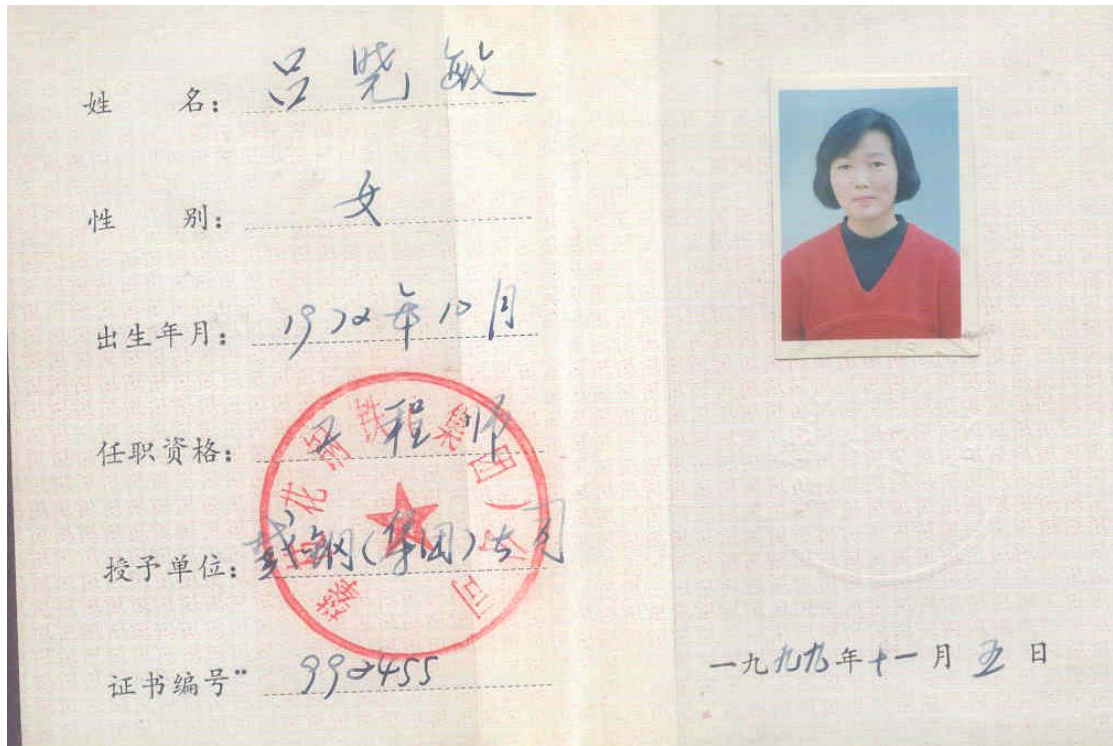 姓 名: 吕晓敏
性 别: 女
出生年月: 1972年10月
任职资格: 工程师
授予单位: 攀钢(集团)公司
证书编号" 992455
攀枝花钢铁(集团)公司
一九九九年十一月五日